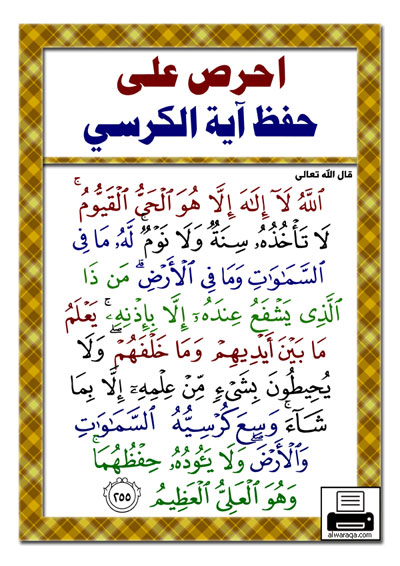 احرص على
حفظ آية الكرسي
قال الله تعالى
ٱللَّهُ لَآ إِلَٰهَ إِلَّا هُوَ ٱلۡحَيُّ ٱلۡقَيُّومُۚ
لَا تَأۡخُذُهُۥ سِنَةٞ وَلَا نَوۡمٞۚ لَّهُۥ مَا فِي
ٱلسَّمَٰوَٰتِ وَمَا فِي ٱلۡأَرۡضِۗ مَن ذَا
ٱلَّذِي يَشۡفَعُ عِندَهُۥٓ إِلَّا بِإِذۡنِهِۦۚ يَعۡلَمُ
مَا بَيۡنَ أَيۡدِيهِمۡ وَمَا خَلۡفَهُمۡۖ وَلَا
يُحِيطُونَ بِشَيۡءٖ مِّنۡ عِلۡمِهِۦٓ إِلَّا بِمَا
شَآءَۚ وَسِعَ كُرۡسِيُّهُ ٱلسَّمَٰوَٰتِ
وَٱلۡأَرۡضَۖ وَلَا يَـُٔودُهُۥ حِفۡظُهُمَاۚ
وَهُوَ ٱلۡعَلِيُّ ٱلۡعَظِيمُ ٢٥٥
alwaraqa.com